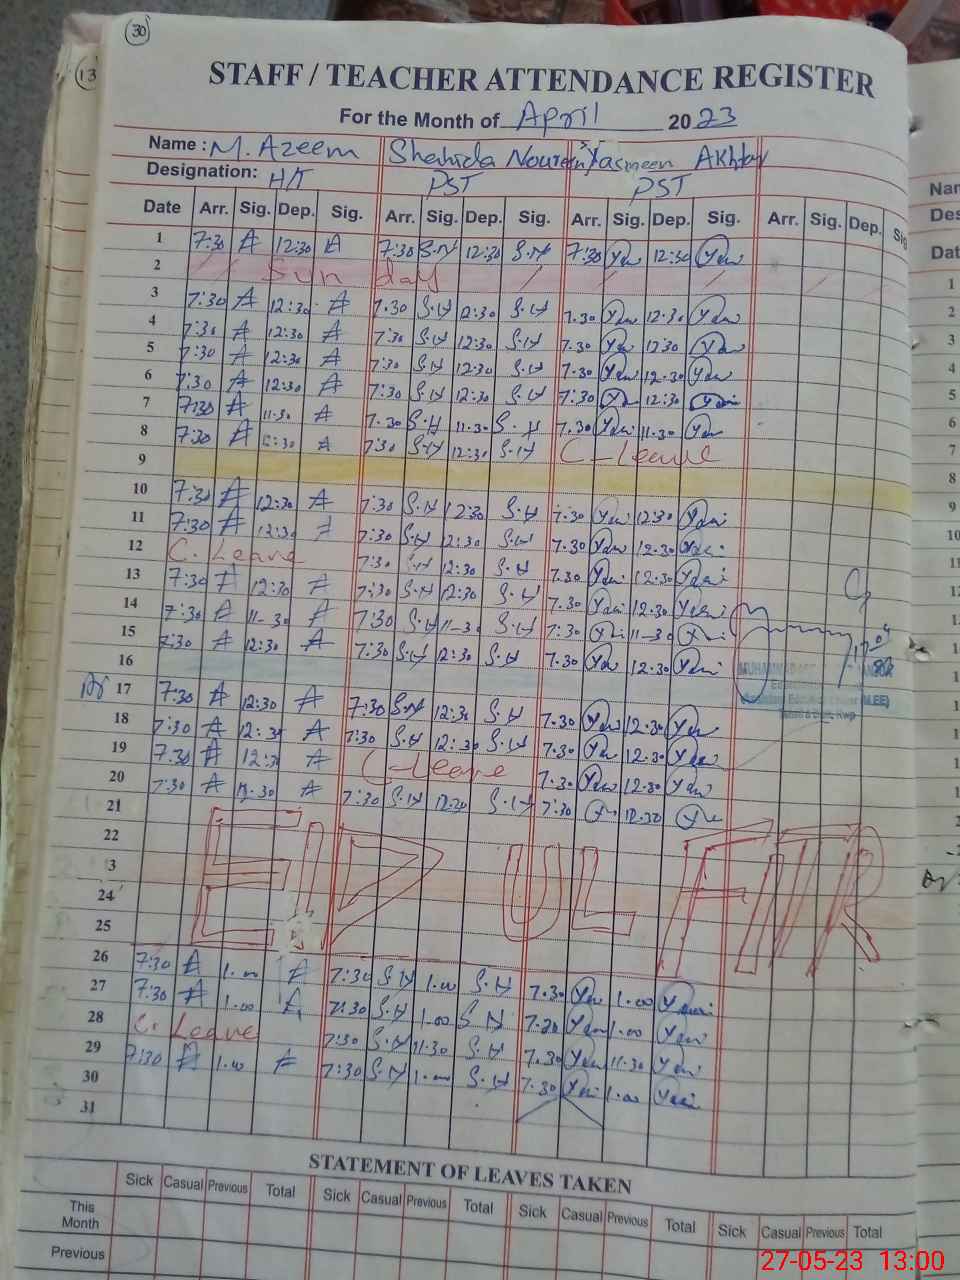 30
13
STAFF / TEACHER ATTENDANCE REGISTER
For the Month of April 2023
Name : M. Azeem Shahida Noureen Yasmeen Akhtar
Designation: H/T PST PST
Date Arr. Sig. Dep. Sig. Arr. Sig. Dep. Sig. Arr. Sig. Dep. Sig. Arr. Sig. Dep. Sig
1 7:30 A 12:30 A 7:30 S.N 12:30 S.N 7:30 Yas 12:30 Yas
2 Sunday
3 7:30 A 12:30 A 7.30 S.N 12:30 S.N 7.30 Yas 12.30 Yas
4 7:30 A 12:30 A 7:30 S.N 12:30 S.N 7.30 Yas 12:30 Yas
5 7:30 A 12:30 A 7:30 S.N 12:30 S.N 7.30 Yas 12.30 Yas
6 7:30 A 12:30 A 7:30 S.N 12:30 S.N 7:30 Yas 12:30 Yas
7 7:30 A 11.30 A 7.30 S.N 11.30 S.N 7.30 Yas 11.30 Yas
8 7:30 A 12:30 A 7:30 S.N 12:30 S.N C-Leave
9
10 7:30 A 12:30 A 7:30 S.N 12:30 S.N 7.30 Yas 12:30 Yas
11 7:30 A 12:30 A 7:30 S.N 12:30 S.N 7.30 Yas 12.30 Yas
12 C. Leave 7:30 S.N 12:30 S.N 7.30 Yas 12.30 Yas
13 7:30 A 12:30 A 7:30 S.N 12:30 S.N 7.30 Yas 12.30 Yas
14 7:30 A 11-30 A 7:30 S.N 11-30 S.N 7:30 Yas 11-30 Yas
15 7:30 A 12:30 A 7:30 S.N 12:30 S.N 7.30 Yas 12.30 Yas
16
17 7:30 A 12:30 A 7:30 S.N 12:30 S.N 7.30 Yas 12.30 Yas
18 7:30 A 12:30 A 7:30 S.N 12:30 S.N 7.30 Yas 12.30 Yas
19 7:30 A 12:30 A C-Leave 7.30 Yas 12.30 Yas
20 7:30 A 12.30 A 7:30 S.N 12:30 S.N 7:30 Yas 12.30 Yas
21
22 EID UL FITR
3
24
25
26 7:30 A 1.00 A 7:30 S.N 1.00 S.N 7.30 Yas 1.00 Yas
27 7:30 A 1.00 A 7:30 S.N 1.00 S.N 7.30 Yas 1.00 Yas
28 C. Leave 7:30 S.N 11:30 S.N 7.30 Yas 11.30 Yas
29 7:30 A 1.00 A 7:30 S.N 1.00 S.N 7.30 Yas 1.00 Yas
30
31
STATEMENT OF LEAVES TAKEN
Sick Casual Previous Total Sick Casual Previous Total Sick Casual Previous Total Sick Casual Previous Total
This Month
Previous
27-05-23 13:00